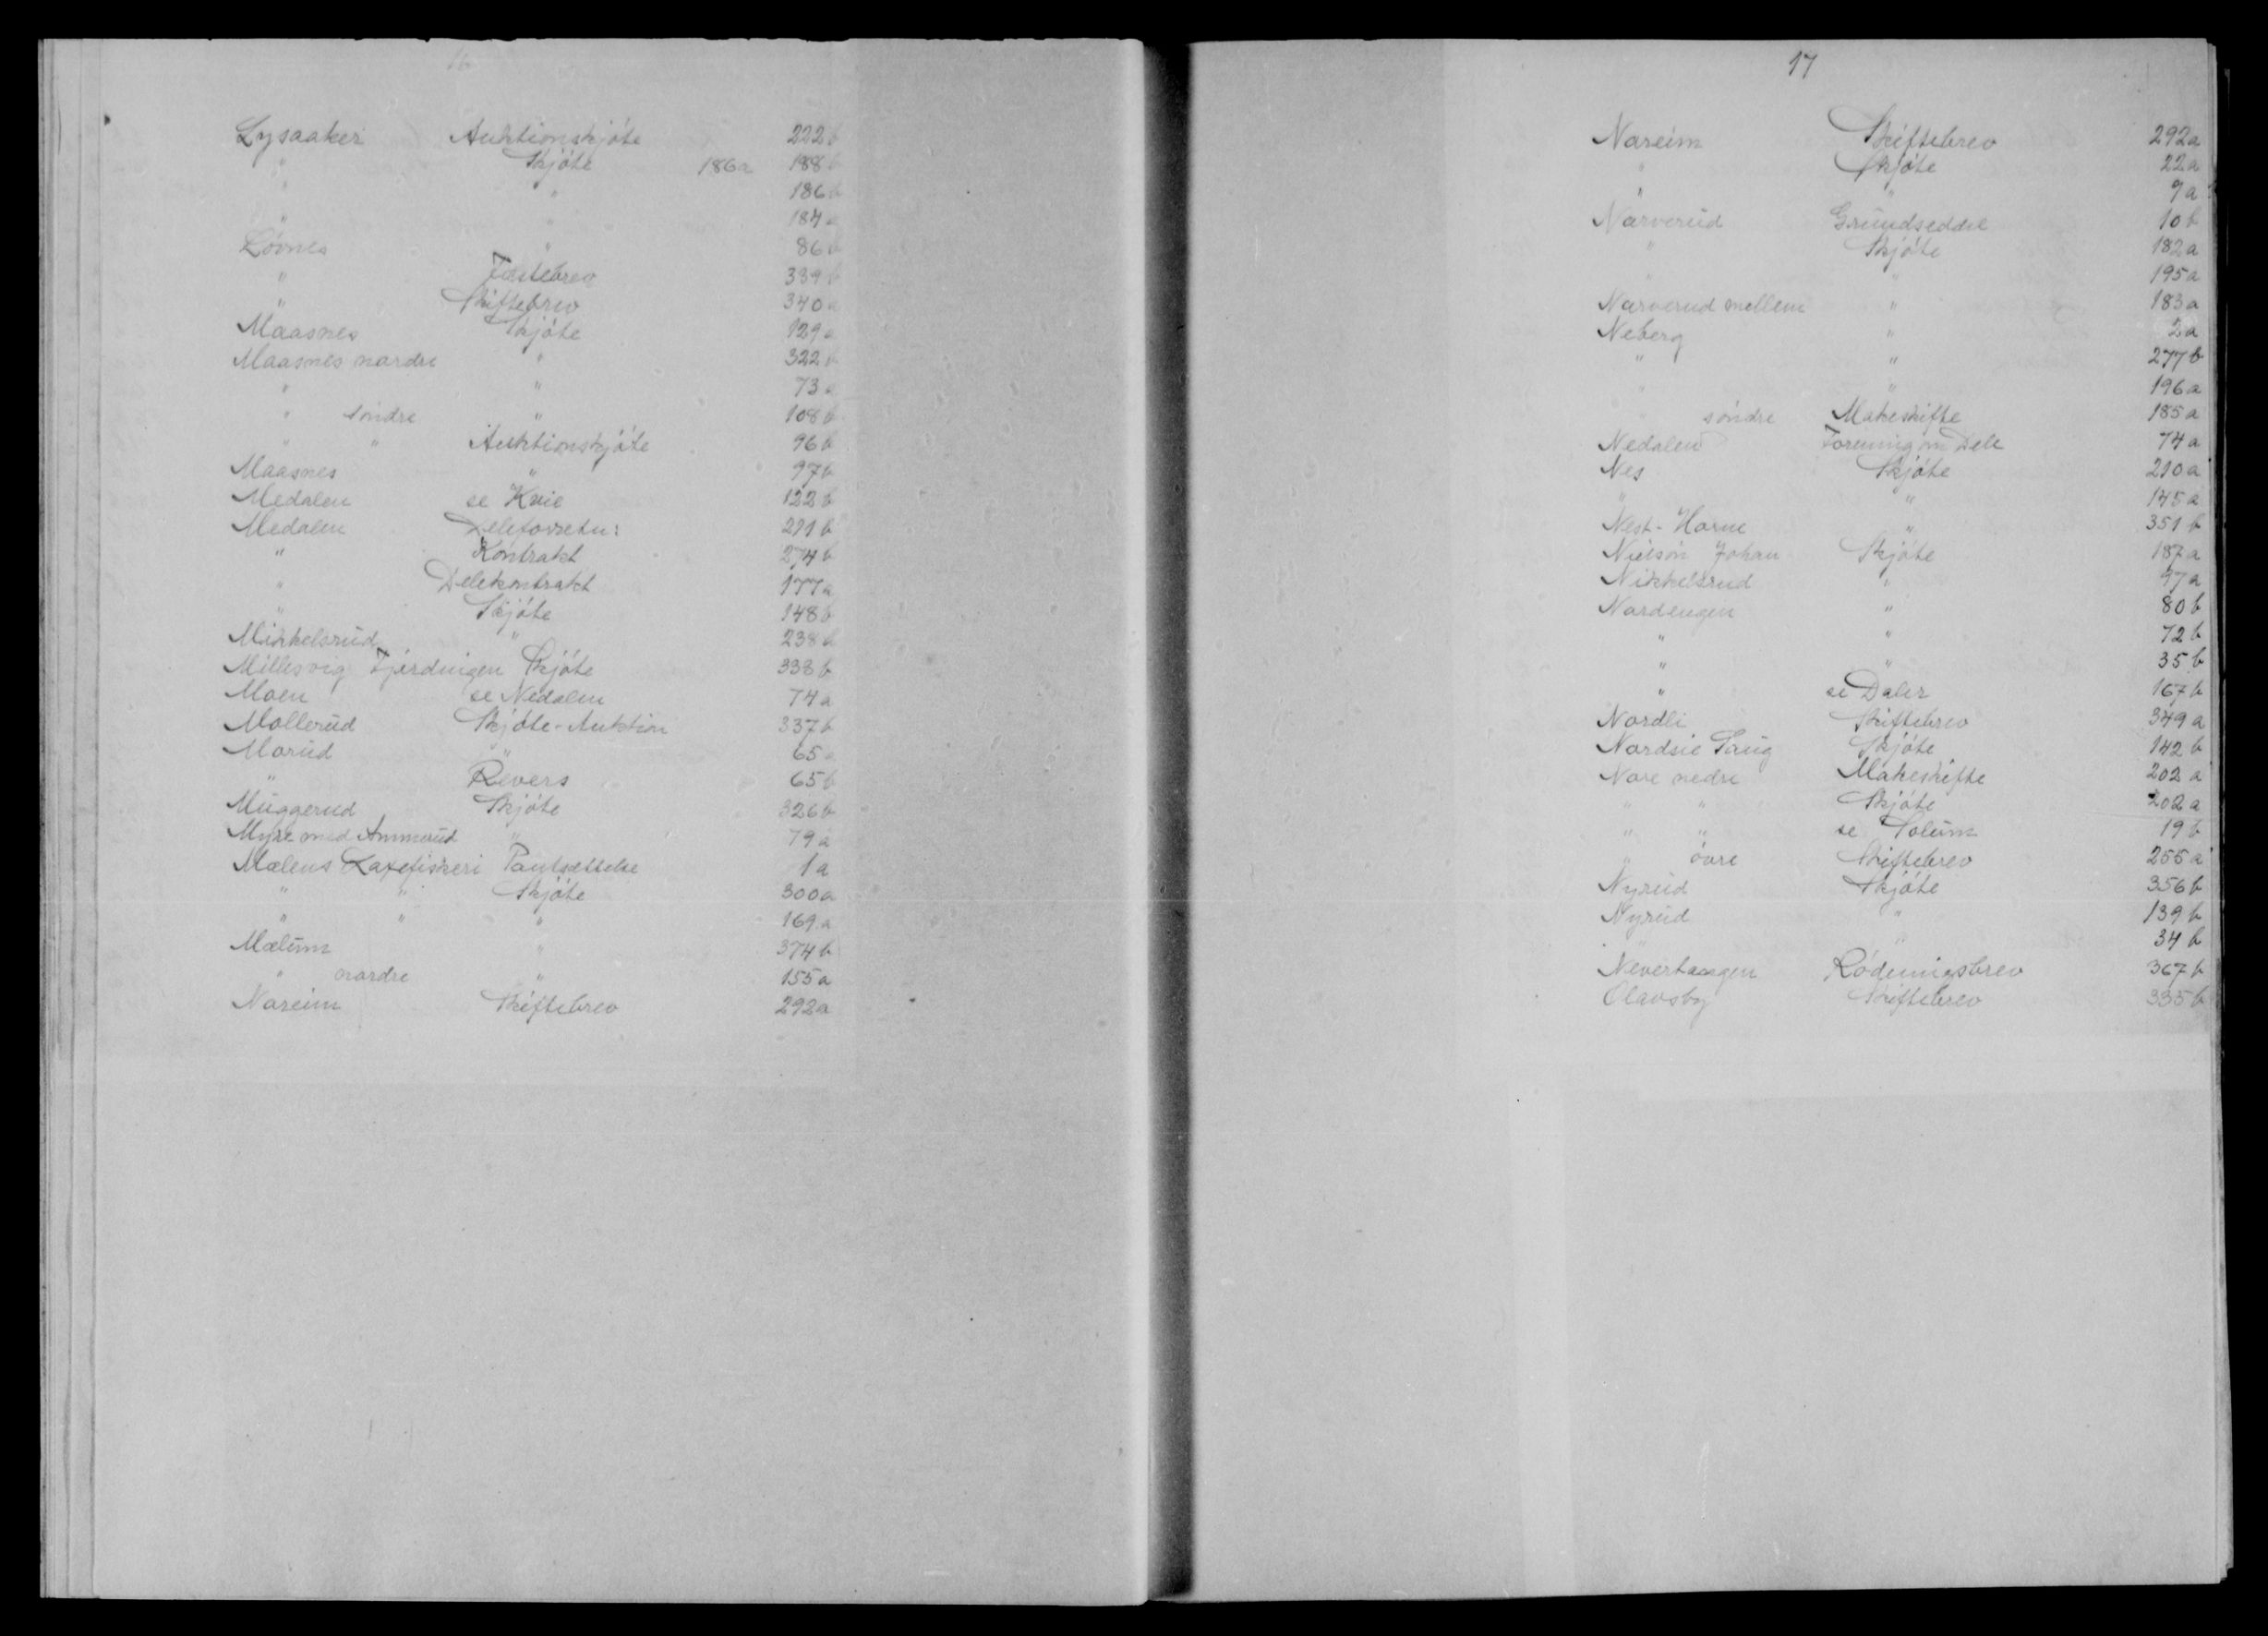 16
Lysaaker Auktionskjöte 222b
" Skjöte 186a 188b
" " 186b
" " 184a
Lövnes " 86b
" Fæstebrev 339b
" Skiftebrev 340a
Maasnes Skjöte 129a
Maasnes nordre " 322b
" " 73a
" söndre " 108b
" " Auktionskjöte 96b
Maasnes " 97b
Medalen se Kvie 122b
Medalen 291b
" Kontrakt 274b
" Delekontrakt 177a
" Skjöte 148b
Mikkelsrud " 238b
Millesvig Fjerdingen Skjöte 338b
Moen se Nedalen 74a
Mollerud Skjöte-Auktion 337b
Morud " 65a
" Revers 65b
Muggerud Skjöte 326b
Myre med Ammerud " 79a
Mælens Laxefiskeri Pantsættelse 1a
" " Skjöte 300a
" " " 169a
Mælum " 374b
" nordre " 155a
Nareim Skiftebrev 292a
17
Nareim Skiftebrev 292a
" Skjöte 22a
" " 9a
Narverud Grundseddel 10b
" Skjöte 182a
" " 195a
Narverud mellem " 183a
Neberg " 2a
" " 277b
" " 196a
" söndre Makeskifte 185a
Nedalen Forening om Dele 74a
Nes Skjöte 210a
" " 145a
Nest-Horne " 351b
Nielsön Johan Skjöte 187a
Nikkelsrud " 97a
Nordengen " 80b
" " 72b
" " 35b
" se Daler 167b
Nordli Skiftebrev 349a
Nordsie Saug Skjöte 142b
Nore nedre Makeskifte 202a
" " Skjöte 202a
" " se Solum 19b
" övre Skiftebrev 255a
Nyrud Skjöte 356b
Nyrud " 139b
" " 34b
Rödningsbrev 367b
Olavsby Skiftebrev 335b